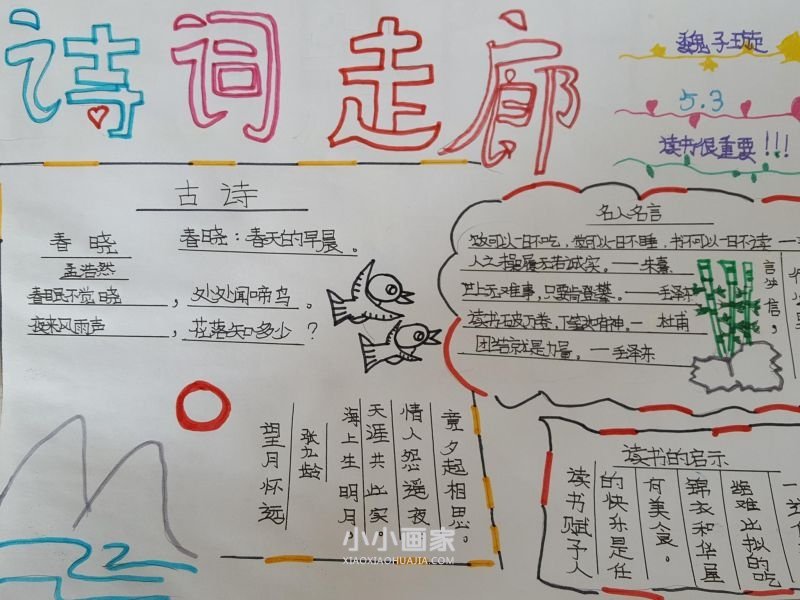 诗词走廊
魏子璇
5.3
读书很重要!!!
古诗
春晓
孟浩然
春眠不觉晓，处处闻啼鸟。
夜来风雨声，花落知多少？
春晓：春天的早晨。
望月怀远
张九龄
海上生明月
天涯共此
情人怨遥夜
竟夕起相思。
名人名言
可以一日不吃，可以一日不睡，书不可以一日不读
人之操履无若诚实。——朱熹
世上无难事，只要肯登攀。——毛泽东
读书破万卷，下笔如有神。——杜甫
团结就是力量。——毛泽东
言必信，
读书的启示
读书赋予人
的快乐是任
何美食。
锦衣和华屋
难比拟的吃
小小画家
XIAOXIAOHUAJIA.COM